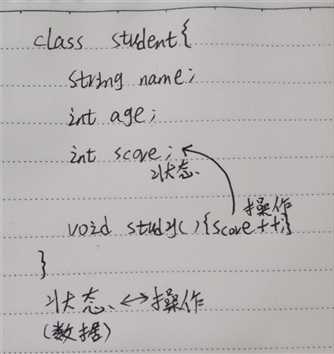 class student{
string name;
int age;
int score;
状态
操作
void study(){score++;}
}
状态↔操作
(数据)